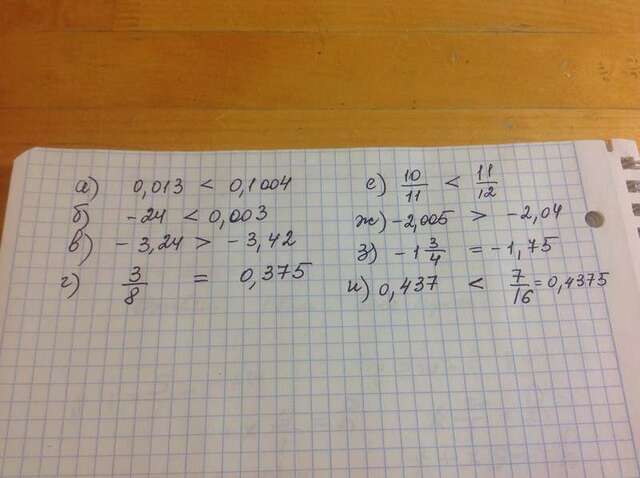 а) 0,013 < 0,1004
б) -24 < 0,003
в) -3,24 > -3,42
г) 3/8 = 0,375
е) 10/11 < 11/12
ж) -2,005 > -2,04
з) -1 3/4 = -1,75
и) 0,437 < 7/16 = 0,4375